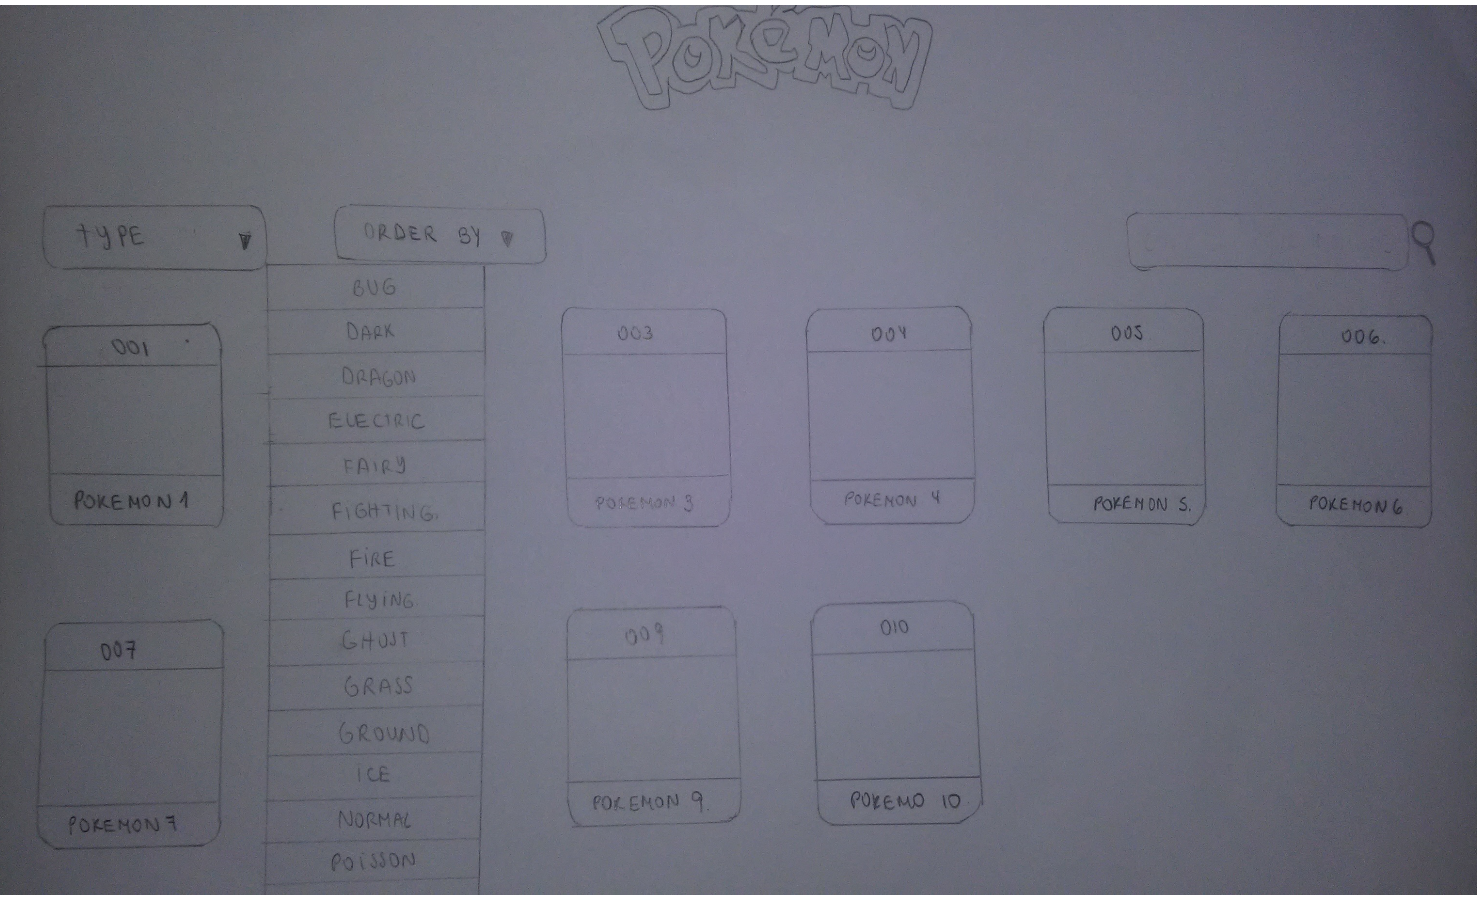 POKÉMON
TYPE
ORDER BY
BUG
DARK
DRAGON
ELECTRIC
FAIRY
FIGHTING.
FIRE
FLYING
GHOST
GRASS
GROUND
ICE
NORMAL
POISSON
001
POKEMON 1
003
POKEMON 3
004
POKEMON 4
005
POKEMON 5.
006.
POKEMON 6
007
POKEMON 7
009
POKEMON 9.
010
POKEMO 10